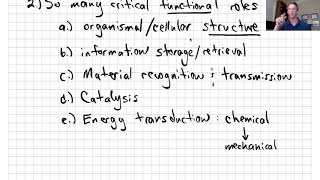 2) So many critical functional roles
a.) organismal/cellular structure
b.) information storage/retrieval
c.) Material recognition & transmission
d.) Catalysis
e.) Energy transduction: chemical
mechanical